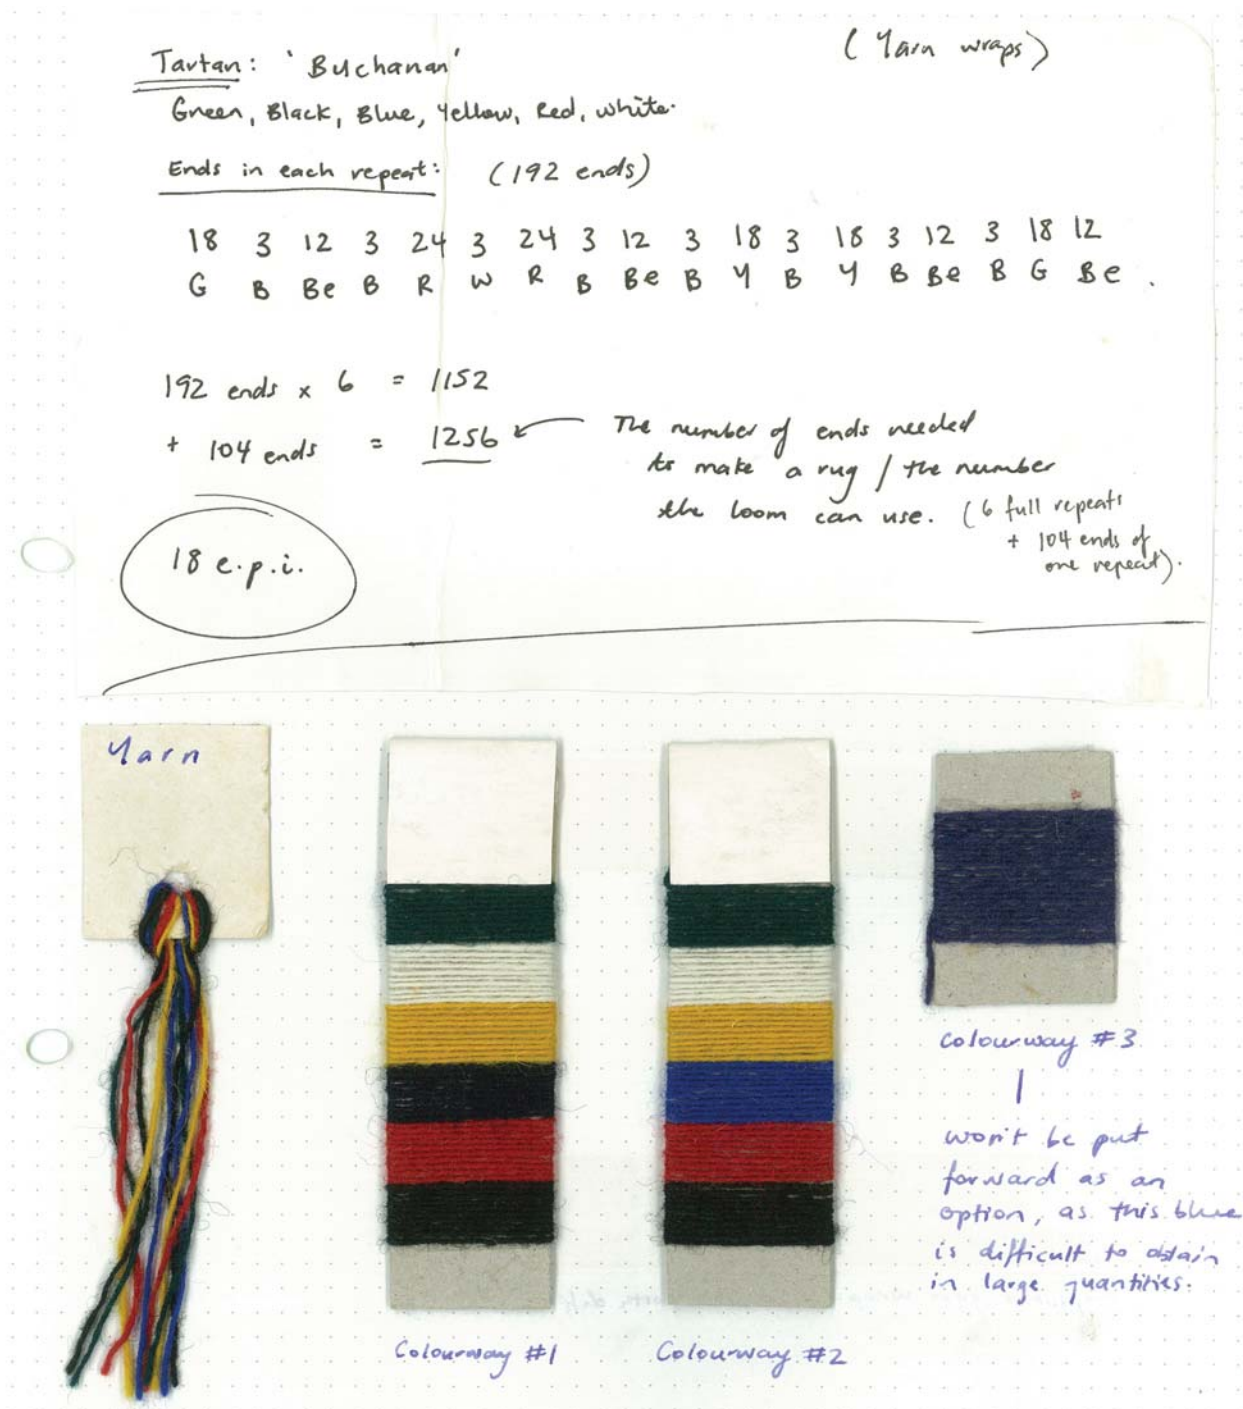 (Yarn wraps)
Tartan: 'Buchanan'
Green, Black, Blue, Yellow, Red, white.
Ends in each repeat: (192 ends)
18 3 12 3 24 3 24 3 12 3 18 3 18 3 12 3 18 12
G B Be B R W R B Be B Y B Y B Be B G Be .
192 ends x 6 = 1152
+ 104 ends = 1256
The number of ends needed
to make a rug / the number
the loom can use. (6 full repeats
+ 104 ends of
one repeat).
18 e.p.i.
Yarn
Colourway #1
Colourway #2
Colourway #3
won't be put
forward as an
option, as this blue
is difficult to obtain
in large quantities.